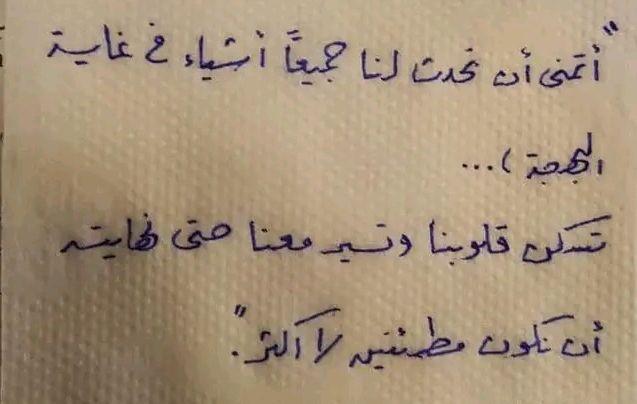 "أتمنى أن تحدث لنا جميعًا أشياء في غاية
البهجة ،...
تسكن قلوبنا وتسير معنا حتى نهايته
أن نكون مطمئنين لا أكثر."